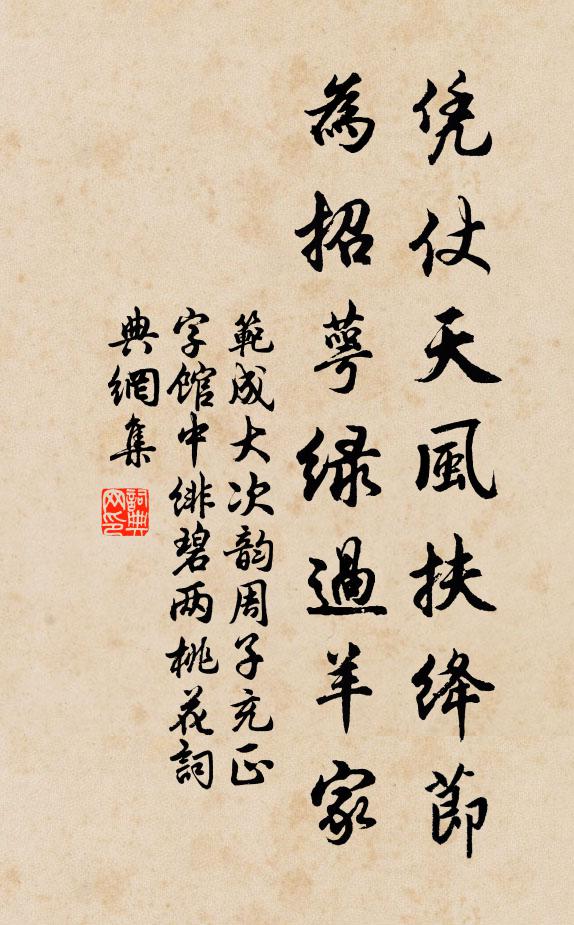 凭仗天風扶絳節
為招萼綠過羊家
範成大次韵周子充正
字館中緋碧两桃花詞
典網集
詞典网印